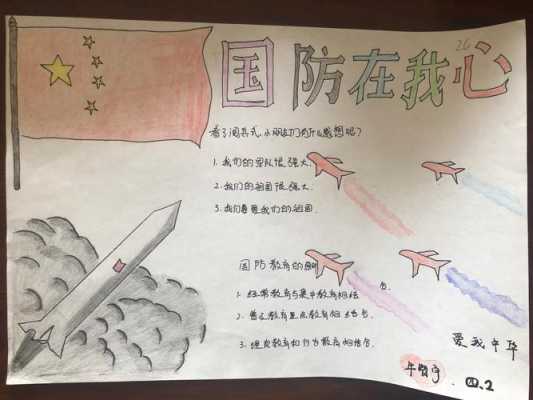 国防在我心
26
看了阅兵式,小朋友们有什么感想呢?
1. 我们的军队很强大.
2. 我们的祖国很强大.
3. 我们要爱我们的祖国.
国防教育的
1. 经常教育与集中教育相结合.
2. 普及教育重点教育相结合.
3. 理论教育和行为教育相结合.
爱我中华
牛
四.2